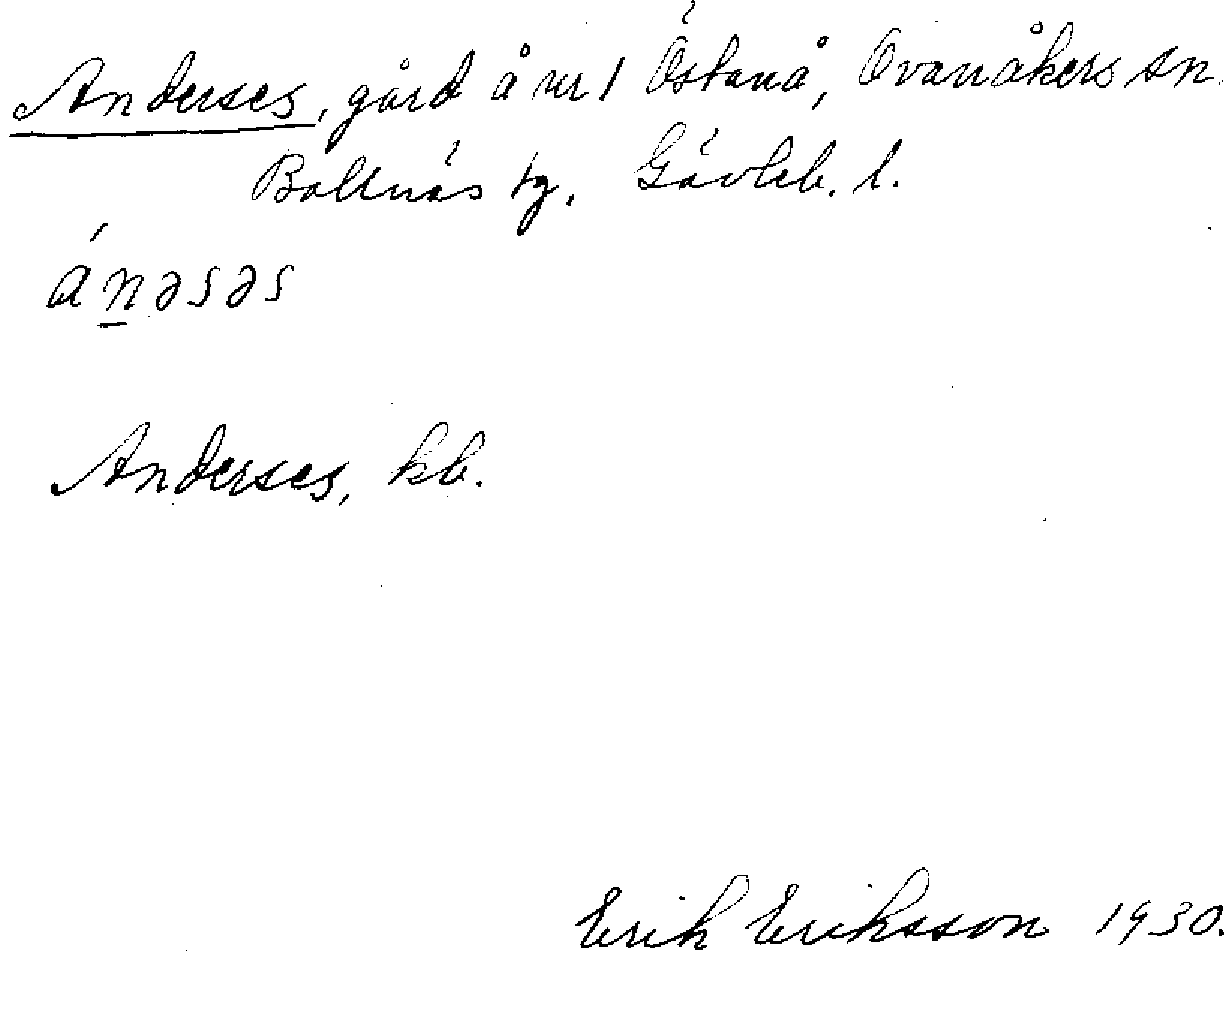 Anderses, gård å nr 1 Östanå, Ovanåkers sn.
Bollnäs tg. Gävleb. l.
ánəsəs
Anderses, kb.
Erik Eriksson 1930.